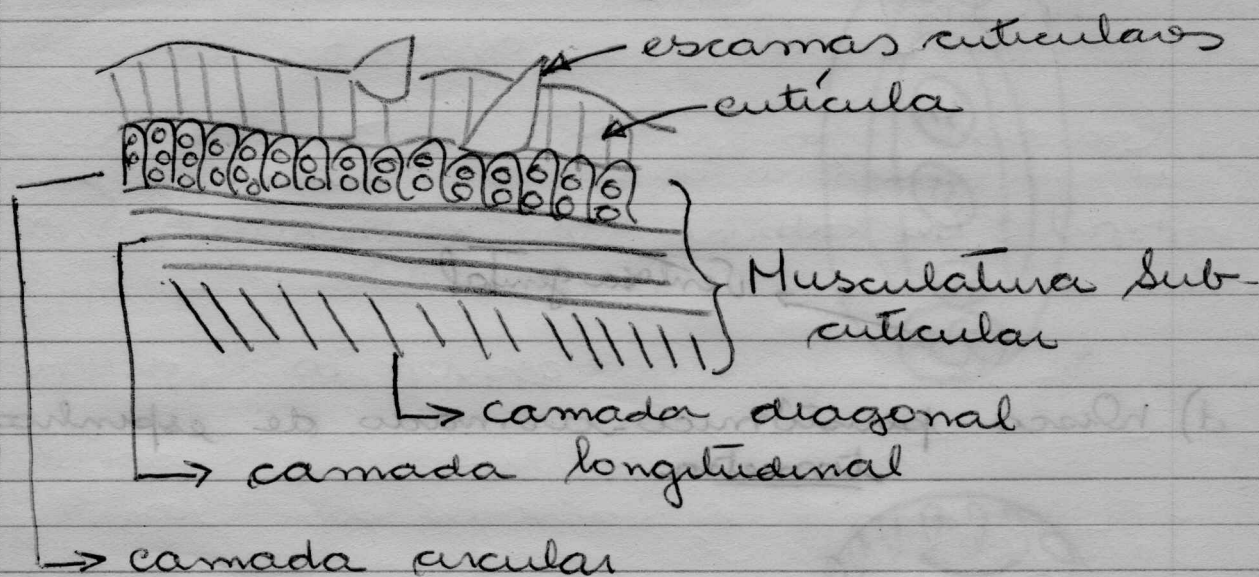 escamas cuticulares
cutícula
Musculatura Sub-
cuticular
camada diagonal
camada longitudinal
camada circular